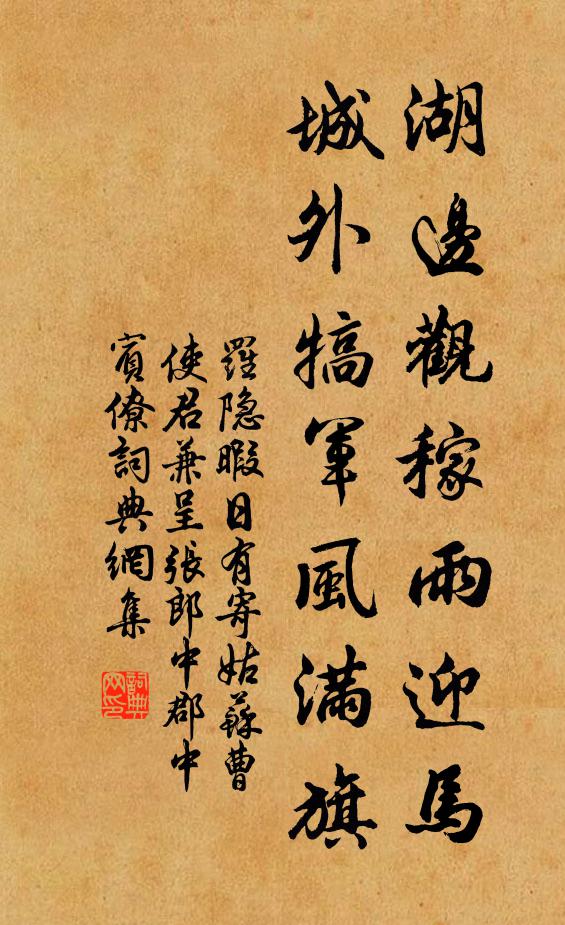 湖邊觀稼雨迎馬
城外犒軍風滿旗
羅隐暇日有寄姑蘇曹
使君兼呈張郎中郡中
賓僚詞典網集
詞典
网印